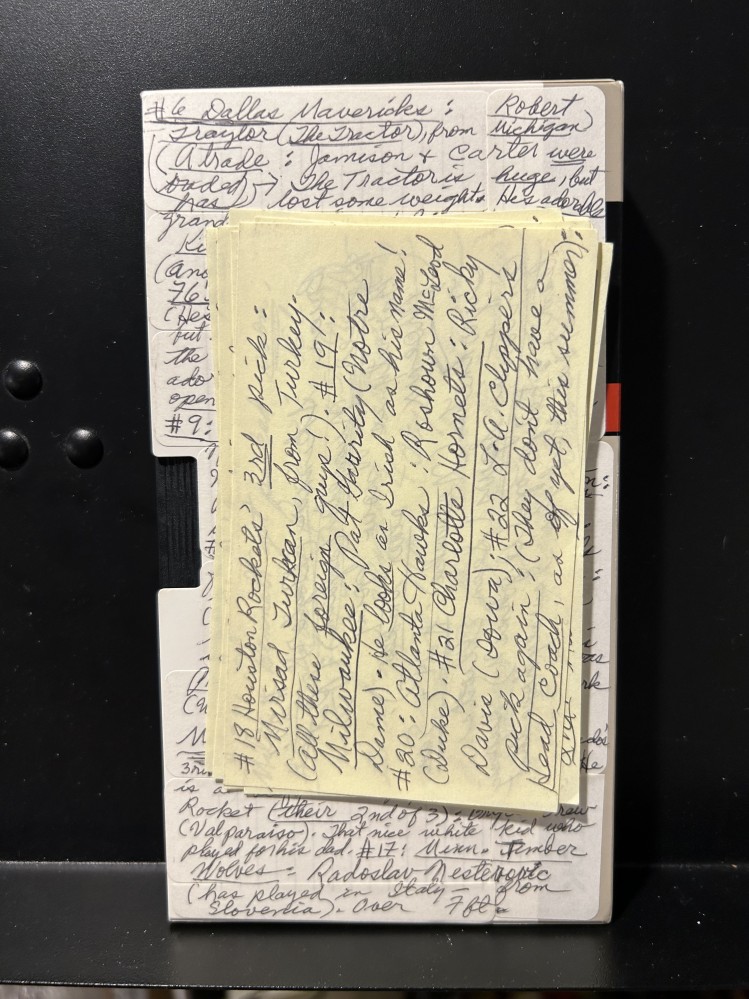 #6 Dallas Mavericks : Robert
Traylor (The Tractor), from Michigan)
(A trade : Jamison + Carter were
traded) → The Tractor is huge, but
has lost some weight. He's adorable
grand
(and
76
(Hes
but
the
ado
open
#9:
#18 Houston Rockets' 3rd pick:
Mirsad Turkcan, from Turkey.
(All these foreign guys!). #19!:
Milwaukee: Pat Garrity (Notre
Dame). He looks as Irish as his name!
#20: Atlanta Hawks : Roshown McLeod
(Duke). #21 Charlotte Hornets: Ricky
Davis (Iowa); #22 L.A. Clippers
pick again; (They don't have a
head coach, as of yet, this summer):
3rd
is a
Rocket (their 2nd of 3): Drew
(Valparaiso). That nice white kid who
played for his dad. #17: Minn. Timber
Wolves = Radoslav Nesterovic
(has played in Italy – from
Slovenia). Over 7 ft.